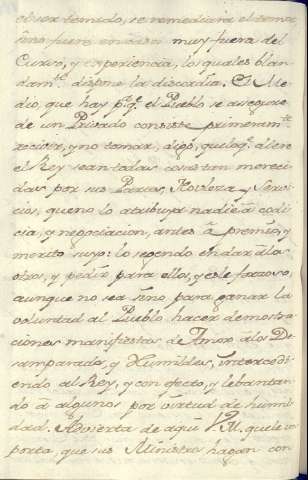 muy fuera del
Curso, y experiencia, los quales blan-
dam.te dispone la discordia. El Me-
dio, que hay p.a q.e el Pueblo se asegure
de un Privado consiste primeram.te
recivir, y no tomar, digo, que lo q.e le diere
el Rey sean todas cosas tan mereci-
das por sus Partes, Nobleza y Servi-
cios, que no lo atribuya nadie à codi-
cia, y negociacion, antes à premio, y
merito suyo: lo segundo en dar à los
otros, y pedir para ellos, y esle forzoso,
aunque no sea sino para ganar la
voluntad al Pueblo hacer demostra-
ciones manifiestas de Amor à los De-
samparados, y Humildes, interced-
endo al Rey, y con efecto, y lebantan-
do à algunos por virtud de humil-
dad. Advierta de aqui V.M. que le im-
porta, que sus Ministros hagan con